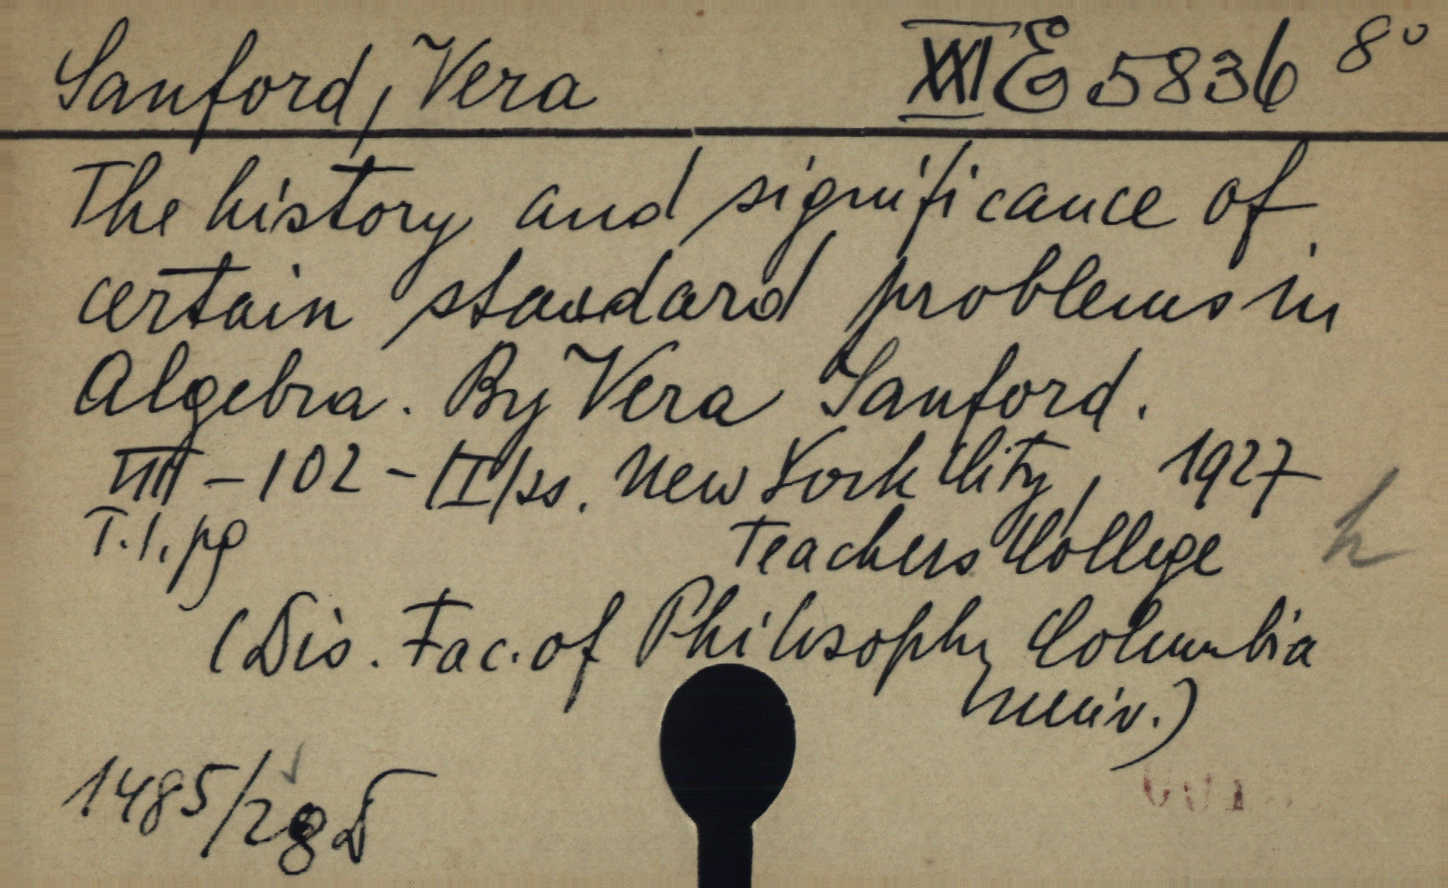 Sanford, Vera XXI E 5836 8°
The history and significance of
certain standard problems in
Algebra. By Vera Sanford.
VIII - 102 - |I|ss. New York City, 1927
T. 1. pg Teachers College h
(Dis. Fac. of Philosophy Columbia
Univ.)
1485/28 D